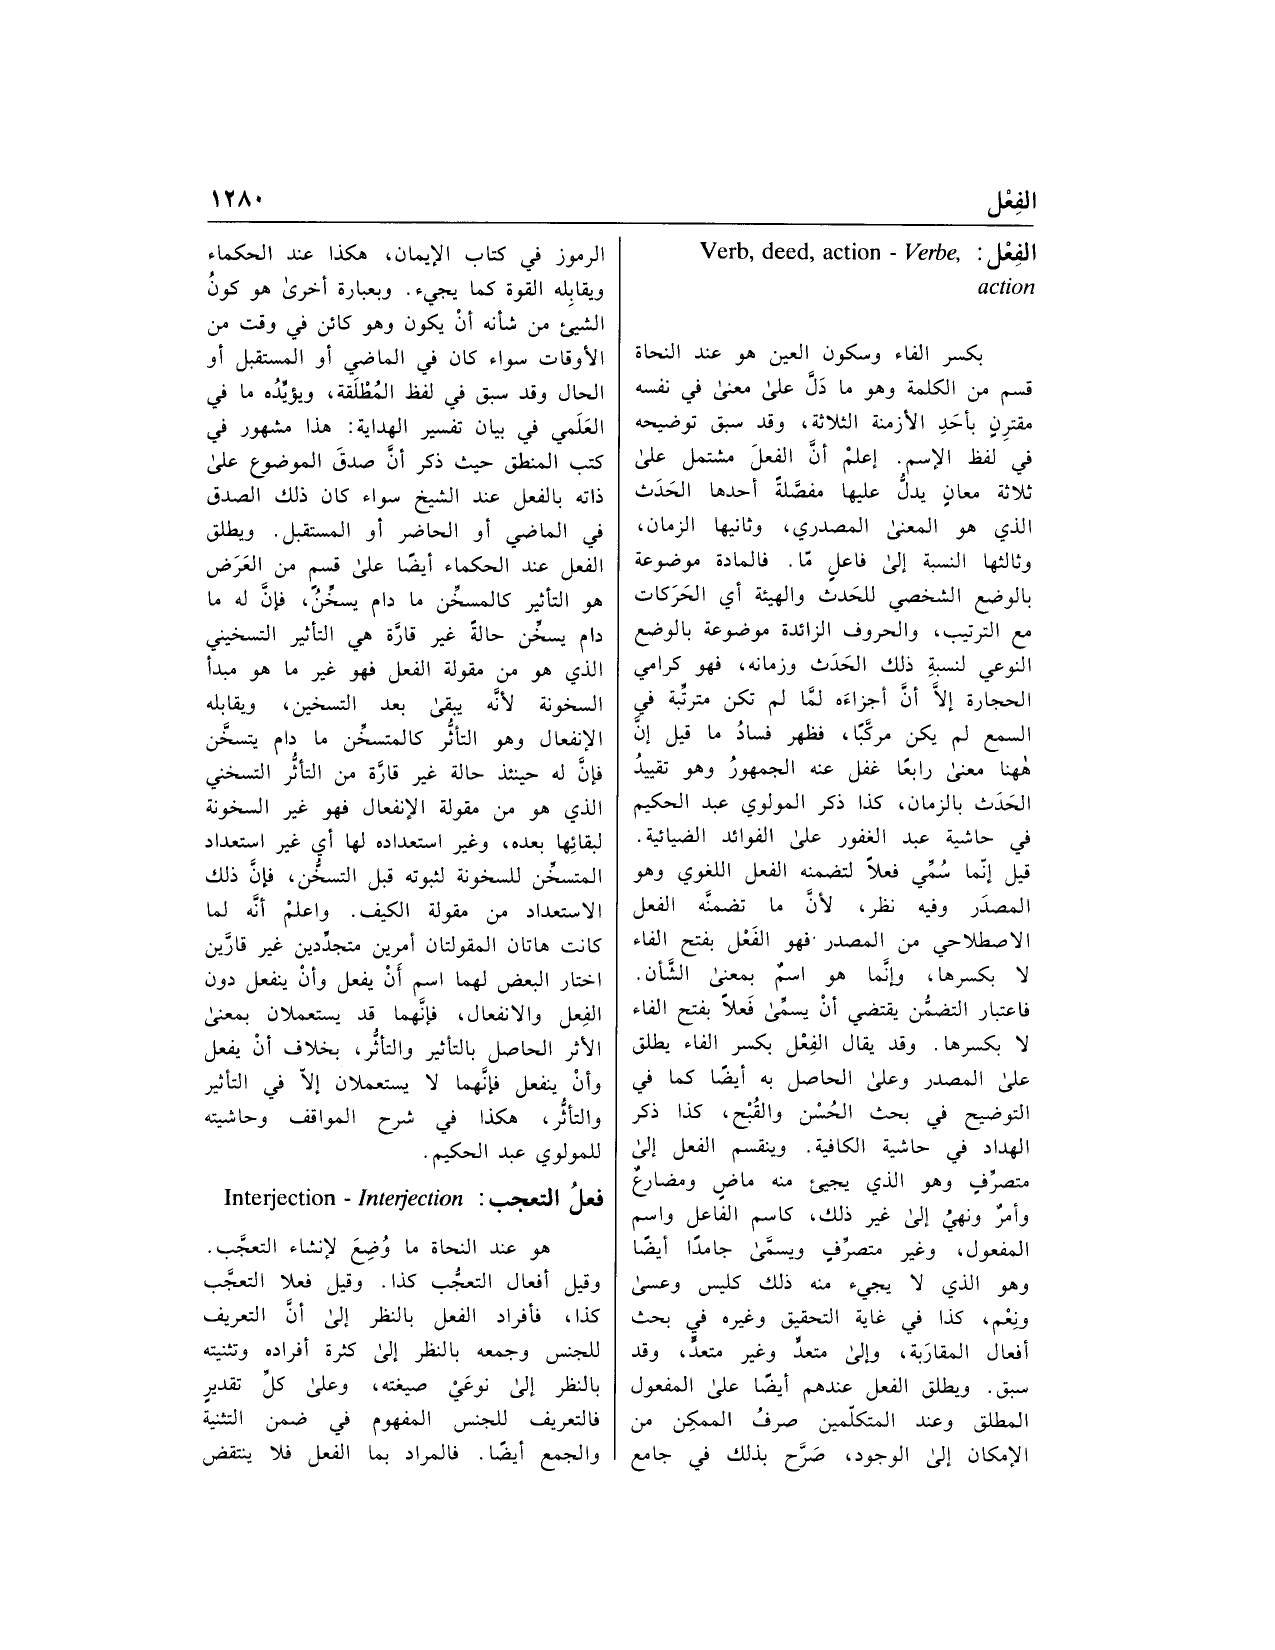 الفِعْل
١٢٨٠
الفِعْل: Verb, deed, action - Verbe,
action
بكسر الفاء وسكون العين هو عند النحاة
قسم من الكلمة وهو ما دَلَّ علىٰ معنىٰ في نفسه
مقترِنٍ بأحَدِ الأزمنة الثلاثة، وقد سبق توضيحه
في لفظ الإسم. إعلمْ أنَّ الفعلَ مشتمل علىٰ
ثلاثة معانٍ يدلُّ عليها مفصَّلةً أحدها الحَدَث
الذي هو المعنىٰ المصدري، وثانيها الزمان،
وثالثها النسبة إلىٰ فاعلٍ مّا. فالمادة موضوعة
بالوضع الشخصي للحَدث والهيئة أي الحَرَكات
مع الترتيب، والحروف الزائدة موضوعة بالوضع
النوعي لنسبةِ ذلك الحَدَث وزمانه، فهو كرامي
الحجارة إلاَّ أنَّ أجزاءَه لمَّا لم تكن مترتِّبة في
السمع لم يكن مركَّبًا، فظهر فسادُ ما قيل إنَّ
هٰهنا معنىٰ رابعًا غفل عنه الجمهورُ وهو تقييدُ
الحَدَث بالزمان، كذا ذكر المولوي عبد الحكيم
في حاشية عبد الغفور علىٰ الفوائد الضيائية.
قيل إنّما سُمِّي فعلاً لتضمنه الفعل اللغوي وهو
المصدَر وفيه نظر، لأنَّ ما تضمنَّه الفعل
الاصطلاحي من المصدر فهو الفَعْل بفتح الفاء
لا بكسرها، وإنَّما هو اسمٌ بمعنىٰ الشَّأن.
فاعتبار التضمُّن يقتضي أنْ يسمِّىٰ فَعلاً بفتح الفاء
لا بكسرها. وقد يقال الفِعْل بكسر الفاء يطلق
علىٰ المصدر وعلىٰ الحاصل به أيضًا كما في
التوضيح في بحث الحُسْن والقُبْح، كذا ذكر
الهداد في حاشية الكافية. وينقسم الفعل إلىٰ
متصرِّفٍ وهو الذي يجيئ منه ماضٍ ومضارعٌ
وأمرٌ ونهيٌ إلىٰ غير ذلك، كاسم الفاعل واسم
المفعول، وغير متصرِّفٍ ويسمَّىٰ جامدًا أيضًا
وهو الذي لا يجيء منه ذلك كليس وعسىٰ
ونِعْم، كذا في غاية التحقيق وغيره في بحث
أفعال المقارَبة، وإلىٰ متعدٍّ وغير متعدٍّ، وقد
سبق. ويطلق الفعل عندهم أيضًا علىٰ المفعول
المطلق وعند المتكلّمين صرفُ الممكِن من
الإمكان إلىٰ الوجود، صَرَّح بذلك في جامع
الرموز في كتاب الإيمان، هكذا عند الحكماء
ويقابِله القوة كما يجيء. وبعبارة أخرىٰ هو كونُ
الشيئ من شأنه أنْ يكون وهو كائن في وقت من
الأوقات سواء كان في الماضي أو المستقبل أو
الحال وقد سبق في لفظ المُطْلَقة، ويؤيِّدُه ما في
العَلَمي في بيان تفسير الهداية: هذا مشهور في
كتب المنطق حيث ذكر أنَّ صدقَ الموضوع علىٰ
ذاته بالفعل عند الشيخ سواء كان ذلك الصدق
في الماضي أو الحاضر أو المستقبل. ويطلق
الفعل عند الحكماء أيضًا علىٰ قسم من العَرَض
هو التأثير كالمسخِّن ما دام يسخِّنٌ، فإنَّ له ما
دام يسخِّن حالةً غير قارَّة هي التأثير التسخيني
الذي هو من مقولة الفعل فهو غير ما هو مبدأ
السخونة لأنَّه يبقىٰ بعد التسخين، ويقابله
الإنفعال وهو التأثُّر كالمتسخِّن ما دام يتسخَّن
فإنَّ له حينئذ حالة غير قارَّة من التأثُّر التسخني
الذي هو من مقولة الإنفعال فهو غير السخونة
لبقائِها بعده، وغير استعداده لها أي غير استعداد
المتسخِّن للسخونة لثبوته قبل التسخُّن، فإنَّ ذلك
الاستعداد من مقولة الكيف. واعلمْ أنَّه لما
كانت هاتان المقولتان أمرين متجدِّدين غير قارَّين
اختار البعض لهما اسم أَنْ يفعل وأنْ ينفعل دون
الفِعل والانفعال، فإنَّهما قد يستعملان بمعنىٰ
الأثر الحاصل بالتأثير والتأثُّر، بخلاف أنْ يفعل
وأنْ ينفعل فإنَّهما لا يستعملان إلاّ في التأثير
والتأثُّر، هكذا في شرح المواقف وحاشيته
للمولوي عبد الحكيم.
فعلُ التعجب: Interjection - Interjection
هو عند النحاة ما وُضِعَ لإنشاء التعجَّب.
وقيل أفعال التعجُّب كذا. وقيل فعلا التعجَّب
كذا، فأفراد الفعل بالنظر إلىٰ أنَّ التعريف
للجنس وجمعه بالنظر إلىٰ كثرة أفراده وتثنيته
بالنظر إلىٰ نوعَيْ صيغته، وعلىٰ كلِّ تقديرٍ
فالتعريف للجنس المفهوم في ضمن التثنية
والجمع أيضًا. فالمراد بما الفعل فلا ينتقض